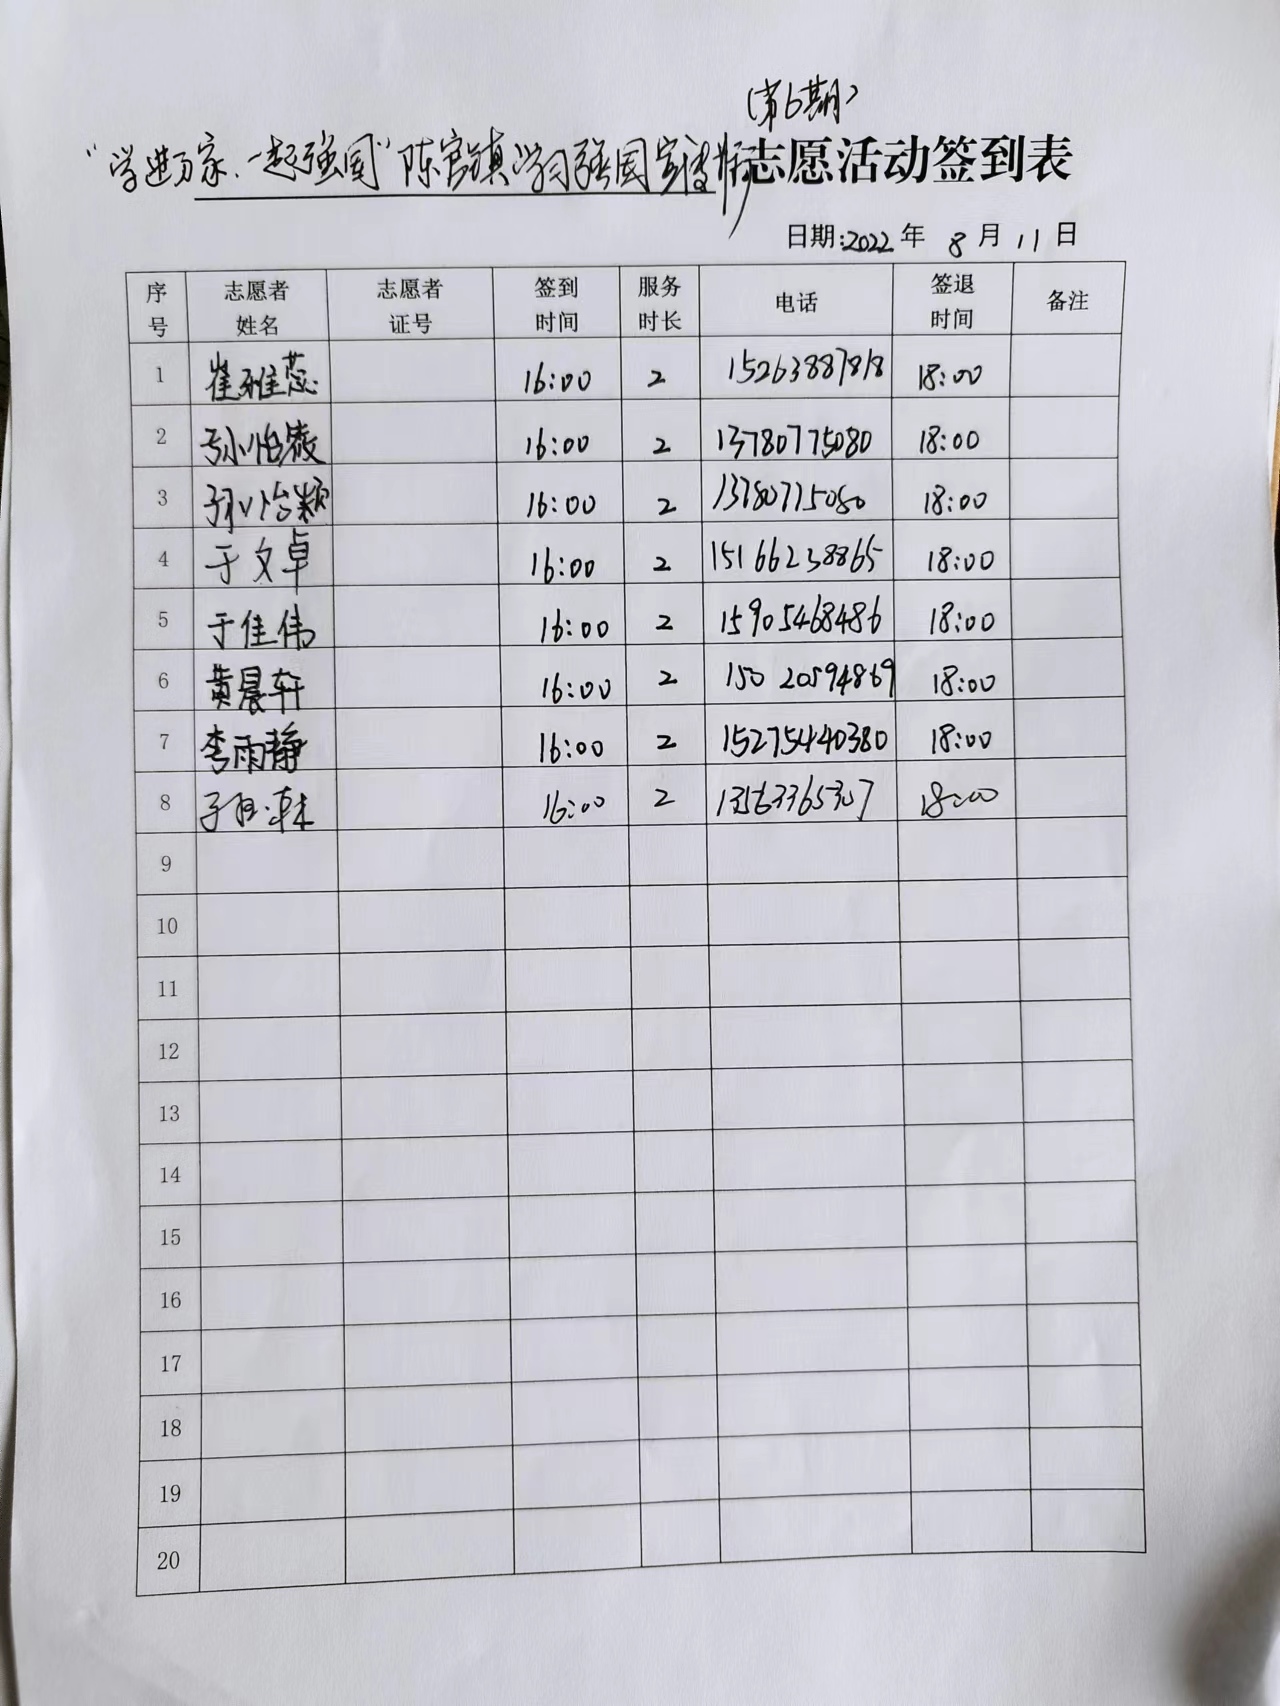 （第6期）
“学进万家、一起强国”陈官镇学习强国宣传 志愿活动签到表
日期:2022年 8月 11日
序号 志愿者姓名 志愿者证号 签到时间 服务时长 电话 签退时间 备注
1 崔雅蕊 16:00 2 15263887818 18:00
2 孙怡薇 16:00 2 13780775080 18:00
3 孙怡颖 16:00 2 13780775080 18:00
4 于文卓 16:00 2 15166238865 18:00
5 于佳伟 16:00 2 15905468486 18:00
6 黄晨轩 16:00 2 15020594869 18:00
7 李雨静 16:00 2 15275440380 18:00
8 16:00 2 13563365307 18:00
9
10
11
12
13
14
15
16
17
18
19
20